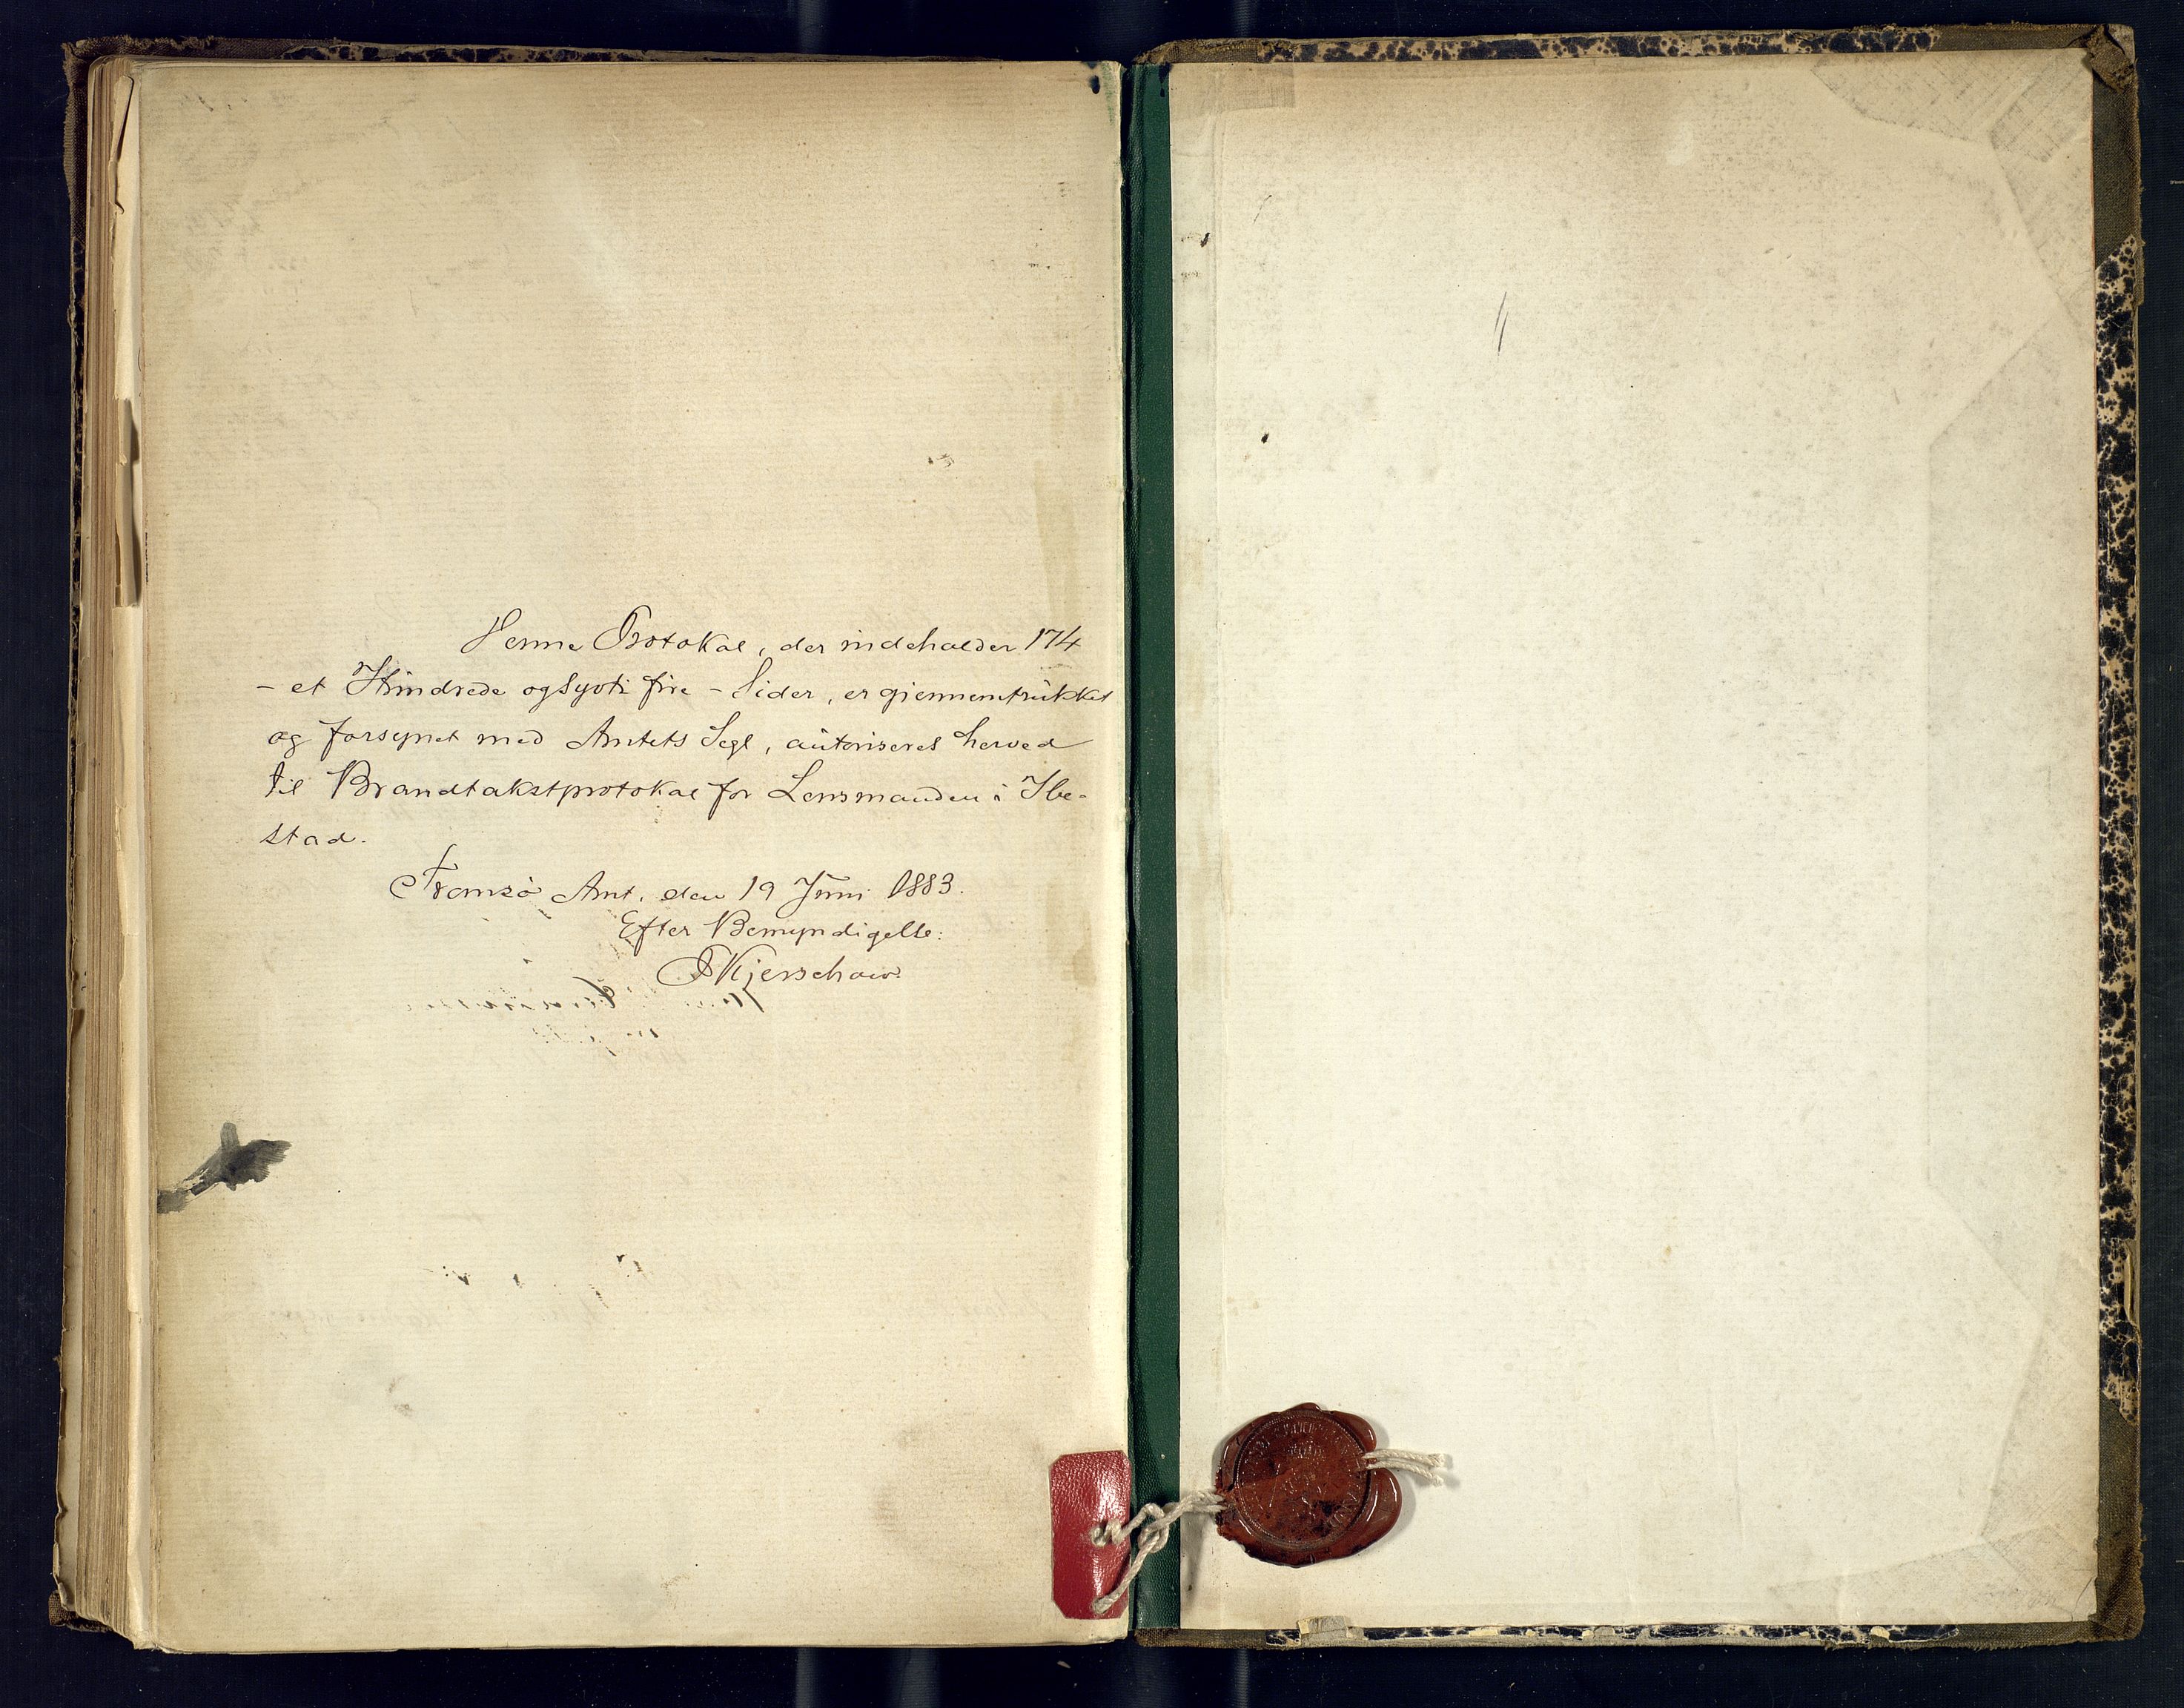 Denne Protokol, der indeholder 174
- et Hundrede og Sytti fire - Sider, er gjennemtrukket
og forsynet med Amtets Segl, autoriseres herved
til Brandtakstprotokol for Lensmanden i Ibe-
stad.
Tromsö Amt, den 19 Juni 1883.
Efter Bemyndigelse:
Kjerschow.